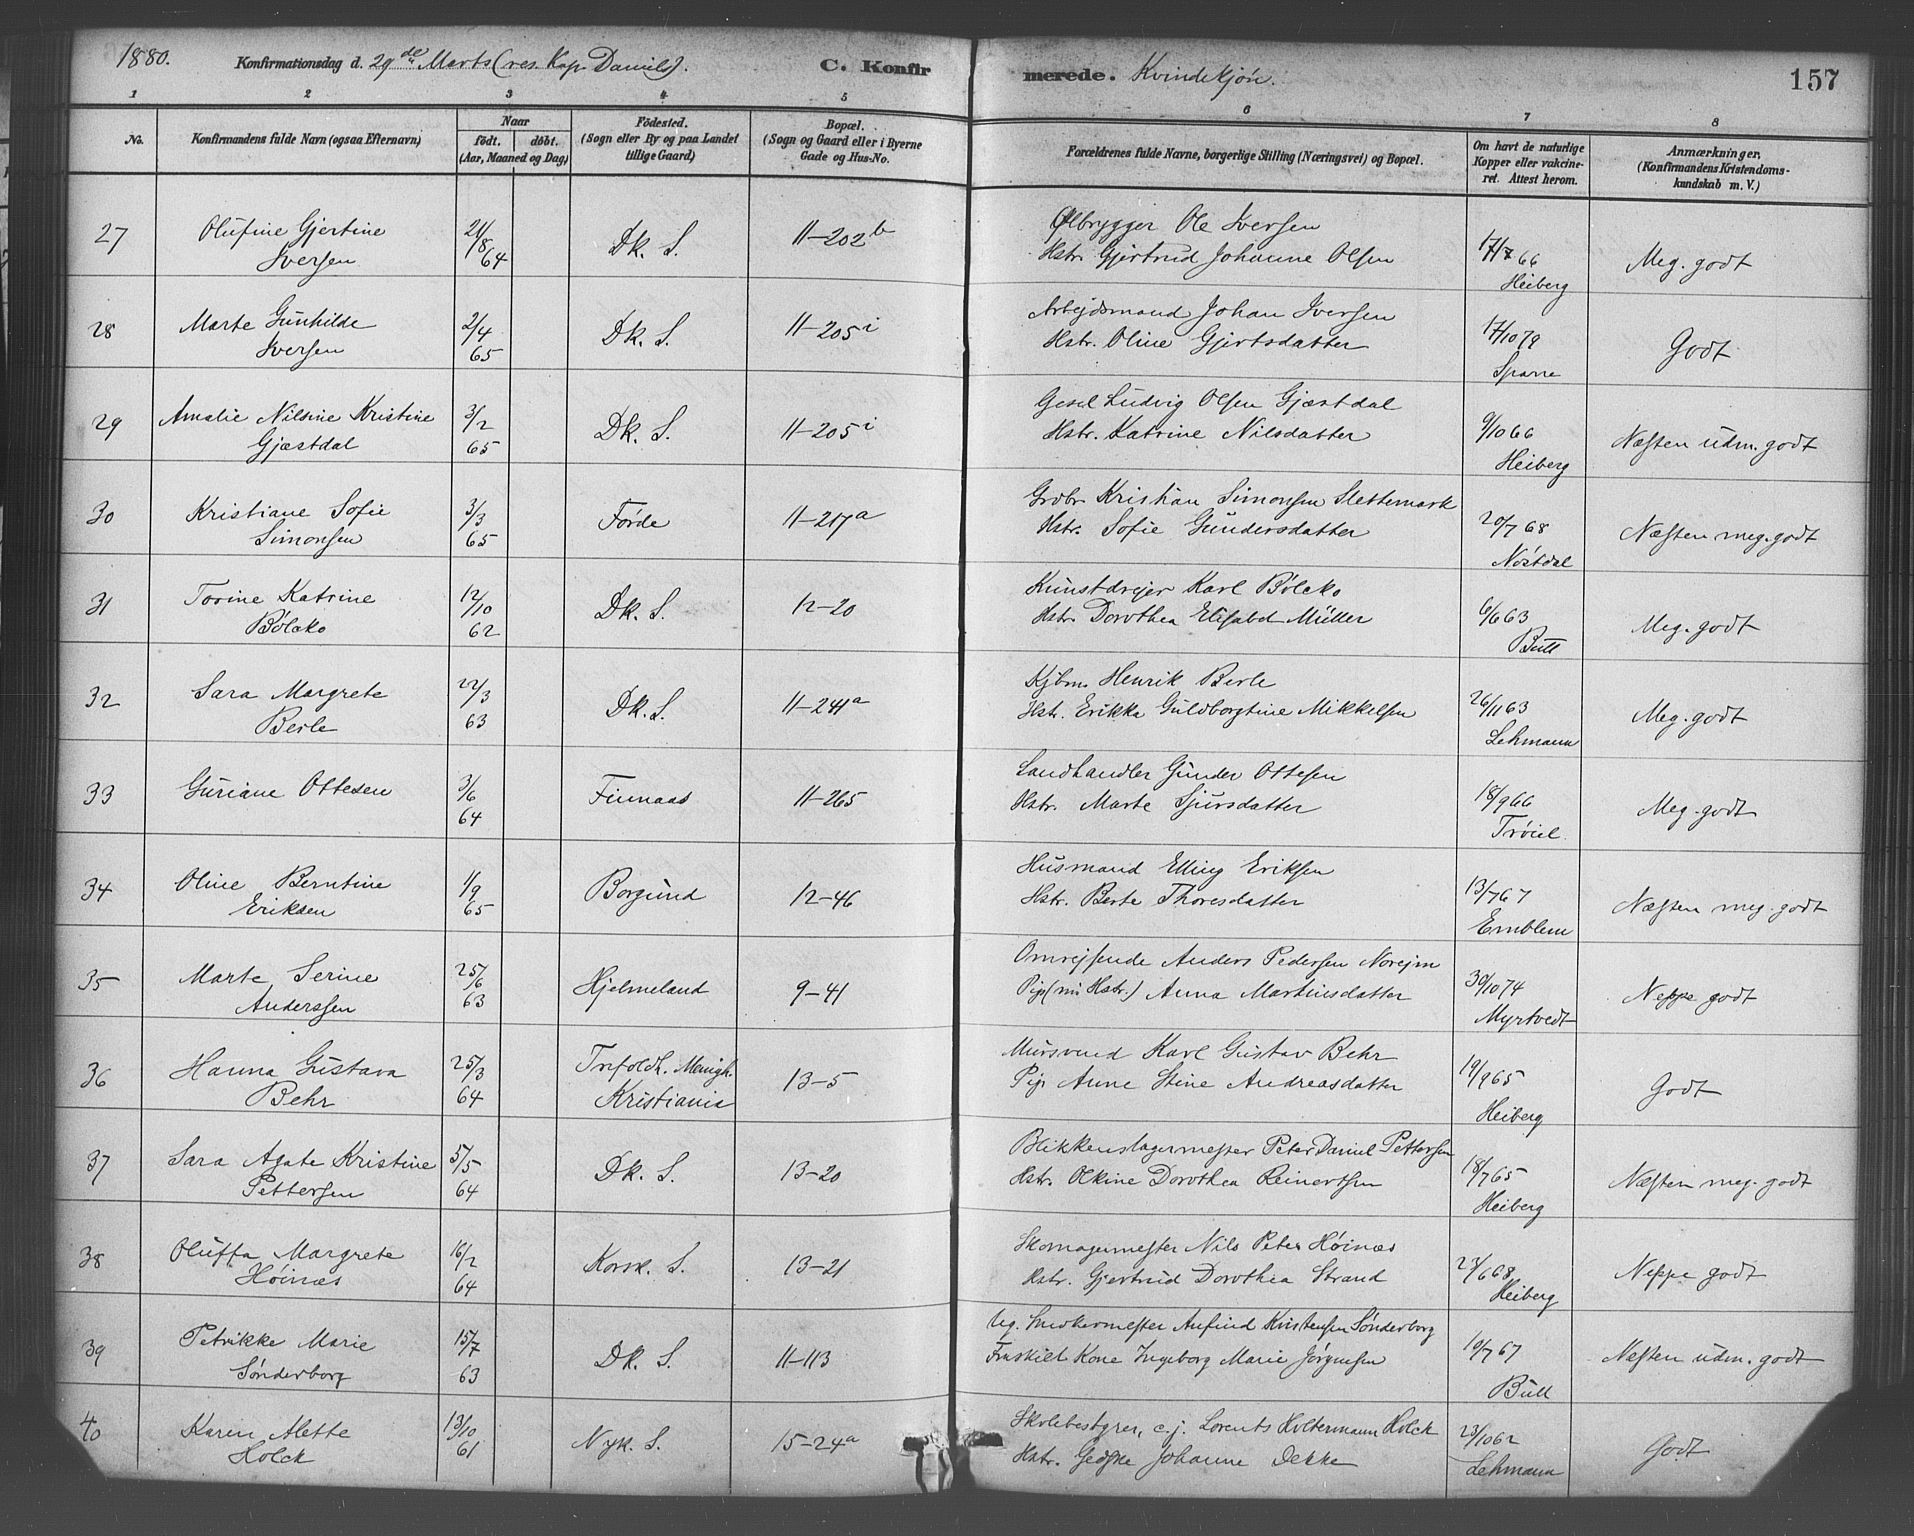 1880. Konfirmationsdag d. 29de Marts (res. Kap. Daniels). C. Konfirmerede. Kvindekjön. 157
1 2 3 4 5 6 7 8
No. Konfirmandens fulde Navn (ogsaa Efternavn) Naar födt. döbt. (Aar, Maaned og Dag) Födested. (Sogn eller By og paa Landet tillige Gaard) Bopæl. (Sogn og Gaard eller i Byerne Gade og Hus-No. Forældrenes fulde Navne, borgerlige Stilling (Næringsvei) og Bopæl. Om havt de naturlige Kopper eller vakcineret. Attest herom. Anmærkninger. (Konfirmandens Kristendomskundskab m. V.)
27 Olufine Gjertine Iversen 21/8 64 Dk. S. 11-202b Ølbrygger Ole Iversen Hstr. Gjertrud Johanne Olsen 17/7 66 Heiberg Meg. godt
28 Marte Gunhilde Iversen 2/4 65 Dk. S. 11-205i Arbejdsmand Johan Iversen Hstr. Oline Gjertsdatter 17/10 79 Sparre Godt
29 Amalie Nilsine Kristine Gjæstdal 3/2 65 Dk. S. 11-205i Gesel Ludvig Olsen Gjæstdal Hstr. Katrine Nilsdatter 9/10 66 Heiberg Næsten udm. godt
30 Kristiane Sofie Simonsen 3/3 65 Førde 11-217a Grdbr. Kristian Simonsen Slettemark Hstr. Sofie Gundersdatter 20/7 68 Nöstdal Næsten meg. godt
31 Torine Katrine Bölcko 12/10 62 Dk. S. 12-20 Kunstdrejer Karl Bölcko Hstr. Dorothea Elisabet Müller 6/6 63 Bull Meg. godt
32 Sara Margrete Berle 22/3 63 Dk. S. 11-241a Kjbm. Henrik Berle Hstr. Erikka Guldborgtine Mikkelsen 26/11 63 Lehmann Meg. godt
33 Guriane Ottesen 3/6 64 Finnaas 11-265 Landhandler Gunder Ottesen Hstr. Marte Sjursdatter 18/9 66 Tröiel. Meg. godt
34 Oline Berntine Eriksen 1/9 65 Borgund 12-46 Husmand Elling Eriksen Hstr. Berte Thoresdatter 13/7 67 Emblem Næsten meg. godt
35 Marte Serine Anderssen 25/6 63 Hjelmeland 9-41 Omrejsende Anders Pedersen Norejm Pig. (nu Hstr.) Anna Martinsdatter 30/10 74 Myrtvedt Neppe godt
36 Hanna Gustava Behr 25/3 64 Trefoldh. Menigh. Kristiania 13-5 Mursvend Karl Gustav Behr Pig. Anne Stine Andreasdatter 19/9 65 Heiberg Godt
37 Sara Agate Kristine Pettersen 5/5 64 Dk. S. 13-20 Blikkenslagermester Peter Daniel Pettersen Hstr. Olkine Dorothea Reinertsen 18/7 65 Heiberg Næsten meg. godt
38 Oluffa Margrete Höinæs 16/2 64 Korsk. S. 13-21 Skomagermester Nils Peter Höinæs Hstr. Gjertrud Dorothea Strand Heiberg Neppe godt
39 Petrikke Marie Sønderborg 15/7 63 Dk. S. 11-113 Snedkermester Anfind Kristensen Sønderborg Fraskilt Kone Ingeborg Marie Jørgensen 19/7 67 Bull Næsten udm. godt
40 Karen Alette Holck 13/10 61 Nyk. S. 15-24a Skolebestyrer, c.j. Lorents Holtermann Holck Hstr. Johanne Dekke 23/10 62 Lehmann Godt